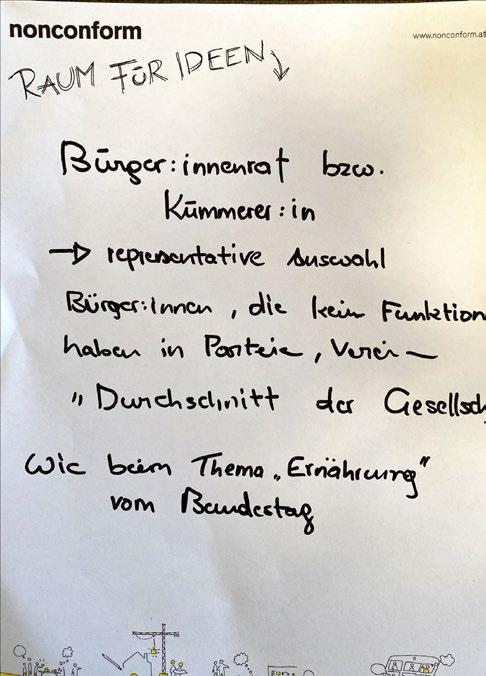 nonconform
www.nonconform.at
RAUM FÜR IDEEN
Bürger:innenrat bzw.
Kümmerer:in
→ representative Auswahl
Bürger:innen, die kein Funktion
haben in Parteie, Verei
"Durchschnitt der Gesellsch
Wie beim Thema „Ernährung"
vom Bundestag